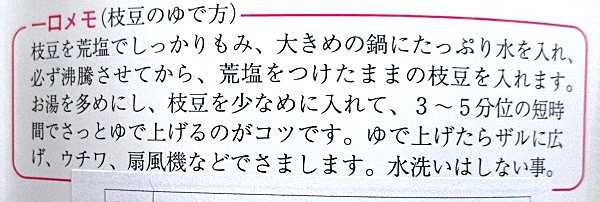 一口メモ(枝豆のゆで方)
枝豆を荒塩でしっかりもみ、大きめの鍋にたっぷり水を入れ、
必ず沸騰させてから、荒塩をつけたままの枝豆を入れます。
お湯を多めにし、枝豆を少なめに入れて、3～5分位の短時
間でさっとゆで上げるのがコツです。ゆで上げたらザルに広
げ、ウチワ、扇風機などでさまします。水洗いはしない事。